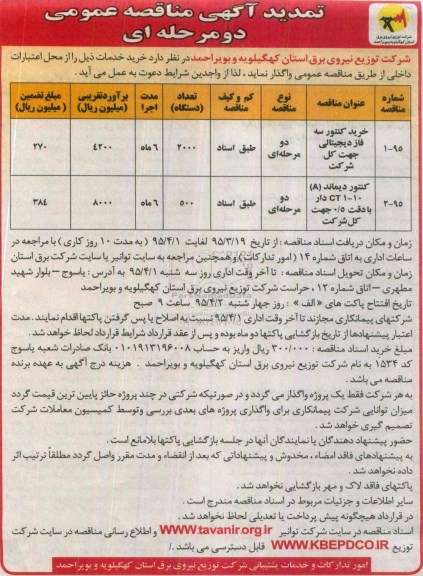 تمدید آگهی مناقصه عمومی
دو مرحله ای
شرکت توزیع نیروی برق
استان کهگیلویه و بویراحمد
شرکت توزیع نیروی برق استان کهگیلویه و بویراحمد در نظر دارد خرید خدمات ذیل را از محل اعتبارات
داخلی از طریق مناقصه عمومی واگذار نماید، لذا از واجدین شرایط دعوت به عمل می آید.
شماره مناقصه عنوان مناقصه نوع مناقصه کم و کیف مناقصه تعداد (دستگاه) مدت اجرا برآورد تقریبی (میلیون ریال) مبلغ تضمین (میلیون ریال)
۱-۹۵ خرید کنتور سه فاز دیجیتالی جهت کل شرکت دو مرحله‌ای طبق اسناد ۲۰۰۰ ۶ ماه ۴۲۰۰ ۲۷۰
۲-۹۵ کنتور دیماند (A) ۱۰-۱ CT دار با دقت ۰/۵ جهت کل شرکت دو مرحله‌ای طبق اسناد ۵۰۰ ۶ ماه ۸۰۰۰ ۳۸۴
زمان و مکان دریافت اسناد مناقصه : از تاریخ ۹۵/۳/۱۹ لغایت ۹۵/۴/۱ ( به مدت ۱۰ روز کاری ) با مراجعه در
ساعات اداری به اتاق شماره ۱۴ ( امور تدارکات ) و همچنین مراجعه به سایت توانیر یا سایت شرکت برق استان
زمان و مکان تحویل اسناد مناقصه : تا آخر وقت اداری روز سه شنبه ۹۵/۴/۱ به آدرس : یاسوج – بلوار شهید
مطهری – اتاق شماره ۱۲ ، حراست شرکت توزیع نیروی برق استان کهگیلویه و بویراحمد
تاریخ افتتاح پاکت های « الف » : روز چهار شنبه ۹۵/۴/۲ ساعت ۹ صبح
شرکتهای پیمانکاری مجازند تا آخر وقت اداری ۹۵/۴/۱ نسبت به اصلاح یا پس گرفتن پاکتها اقدام نمایند. مدت
اعتبار پیشنهادها از تاریخ بازگشایی پاکتها دو ماه بوده و پس از عقد قرارداد شرایط قرارداد لحاظ خواهد شد.
مبلغ خرید اسناد مناقصه : ۳۰۰/۰۰۰ ریال واریز به حساب ۰۱۰۱۹۱۳۱۹۶۰۰۸ بانک صادرات شعبه یاسوج
کد ۱۵۳۴ به نام شرکت توزیع نیروی برق استان کهگیلویه و بویراحمد . هزینه درج آگهی به عهده برنده
مناقصه می باشد .
به هر شرکت فقط یک پروژه واگذار می گردد و در صورتیکه شرکتی در چند پروژه حائز پایین ترین قیمت گردد
میزان توانایی شرکت پیمانکاری برای واگذاری پروژه های بعدی بررسی و توسط کمیسیون معاملات شرکت
تصمیم گیری خواهد شد .
حضور پیشنهاد دهندگان یا نمایندگان آنها در جلسه بازگشایی پاکتها بلامانع است .
به پیشنهادهای فاقد امضاء ، مخدوش و پیشنهاداتی که بعد از انقضاء و مدت مقرر واصل گردد مطلقاً ترتیب اثر
داده نخواهد شد .
پاکتهای فاقد لاک و مهر بازگشایی نخواهد شد .
سایر اطلاعات و جزئیات مربوط در اسناد مناقصه مندرج است .
در قرارداد هیچگونه پیش پرداخت یا تعدیلی لحاظ نخواهد شد .
اسناد مناقصه در سایت شرکت توانیر www.tavanir.org.ir و اطلاع رسانی مناقصه در سایت شرکت
توزیع WWW.KBEPDCO.IR قابل دسترسی می باشد ./
امور تدارکات و خدمات پشتیبانی شرکت توزیع نیروی برق استان کهگیلویه و بویراحمد